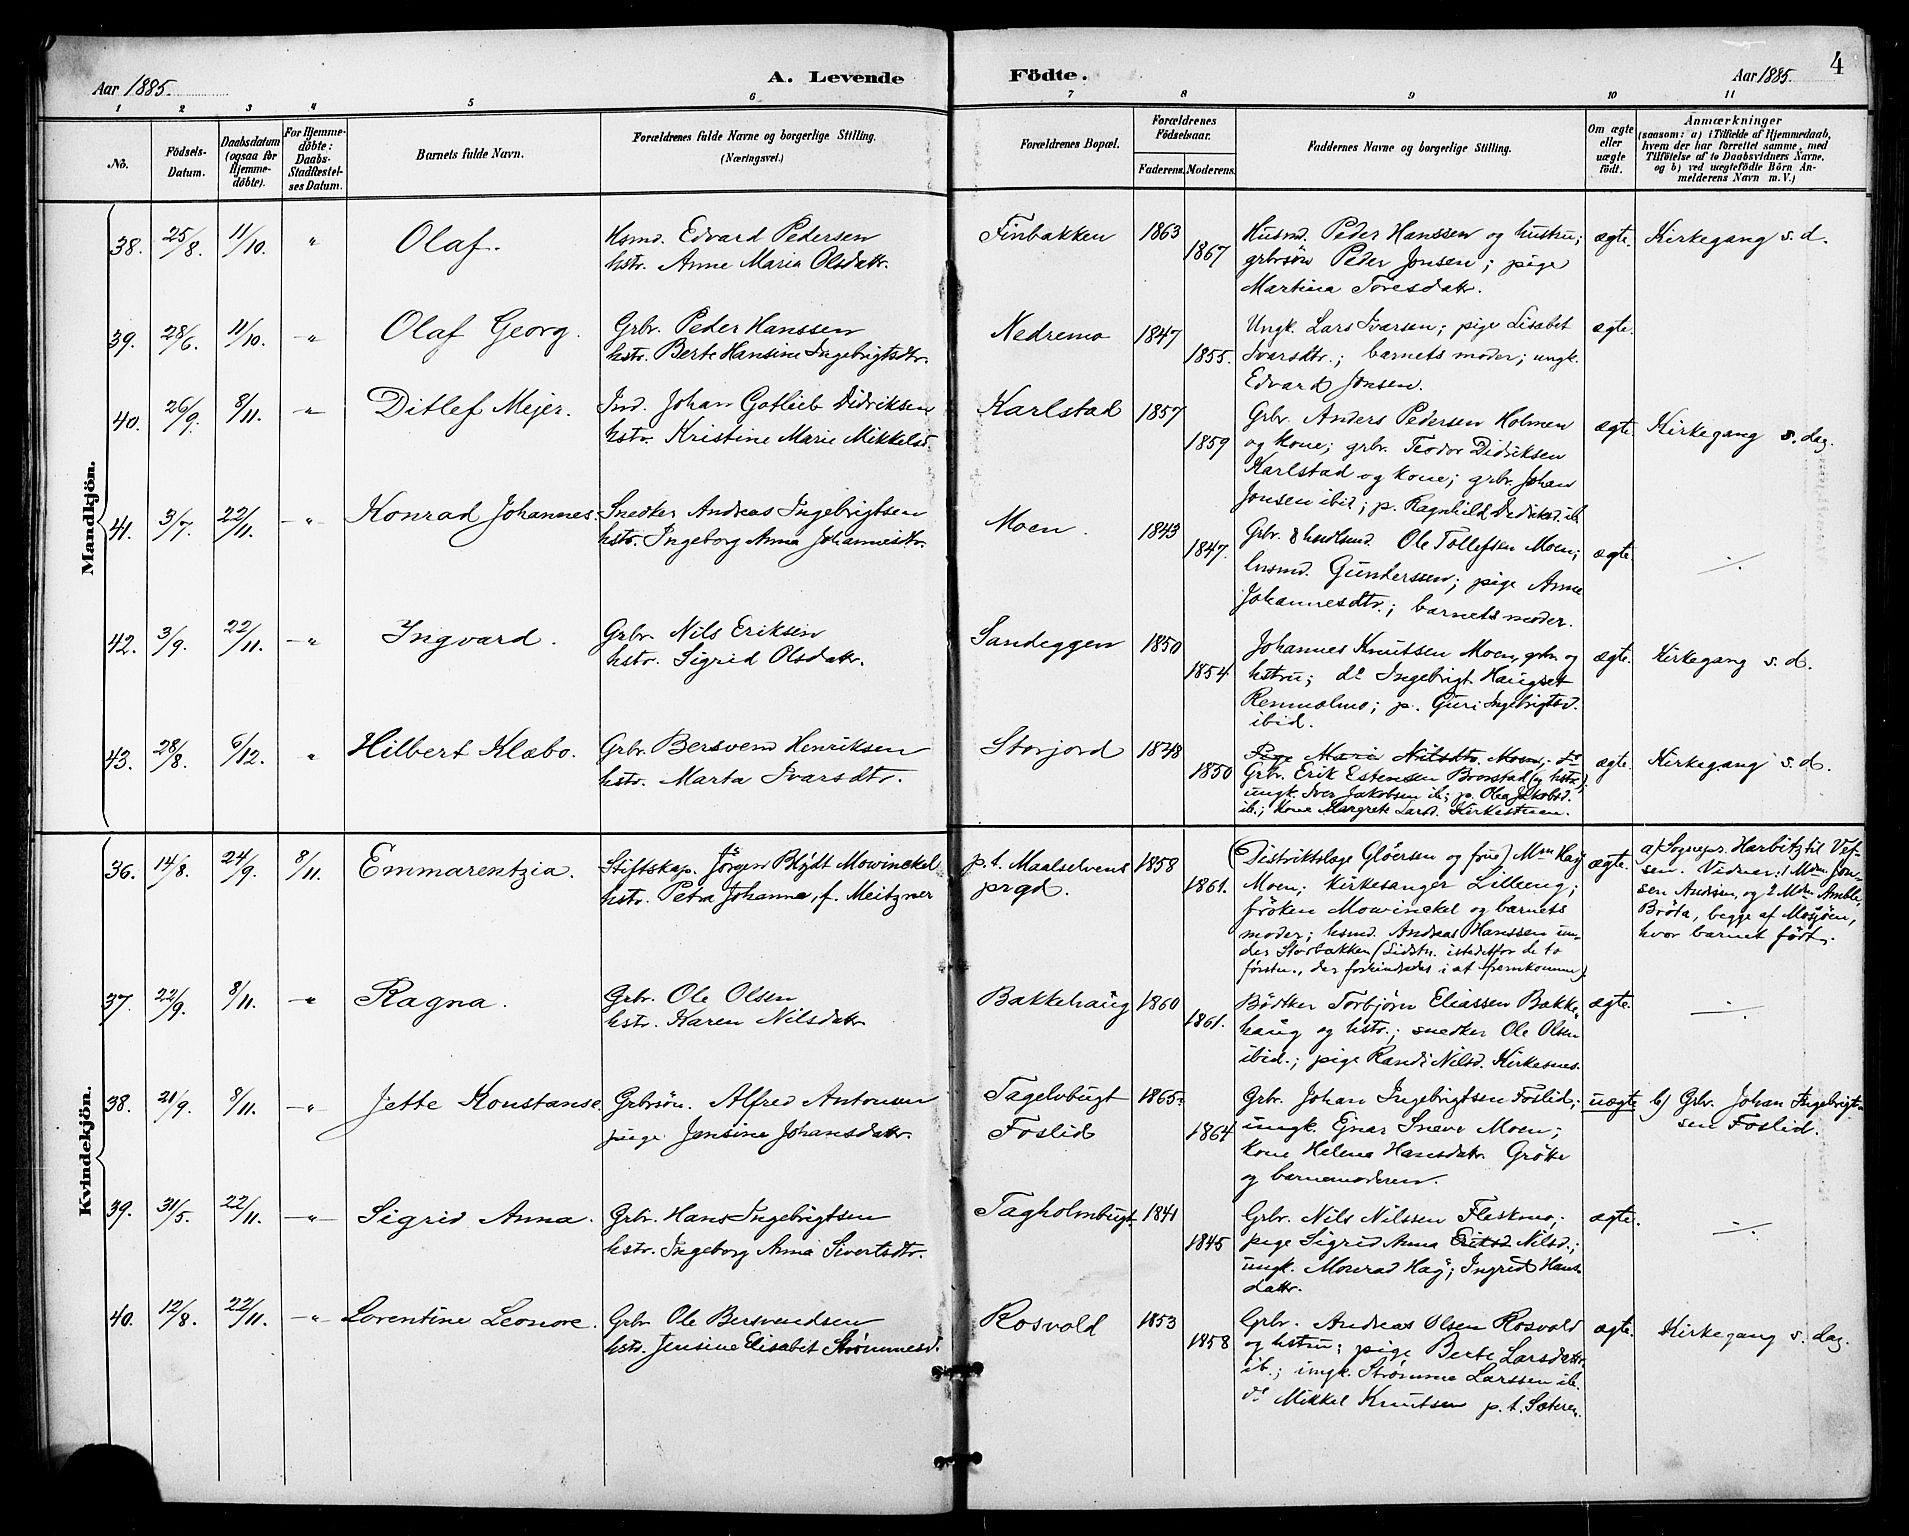 Aar 1885.
A. Levende Födte.
Aar 1885. 4
1 2 3 4 5 6 7 8 9 10 11
No.
Födsels-Datum.
Daabsdatum (ogsaa för Hjemme-döbte).
For Hjemme-döbte: Daabs-Stadfæstel-ses Datum.
Barnets fulde Navn.
Forældrenes fulde Navne og borgerlige Stilling. (Næringsvei.)
Forældrenes Bopæl.
Forældrenes Födselsaar.
Faderens. Moderens.
Faddernes Navne og borgerlige Stilling.
Om ægte eller uægte födt.
Anmærkninger
(saasom: a) i Tilfælde af Hjemmedaab,
hvem der har forrettet samme, med
Tilföielse af to Daabsvidners Navne,
og b) ved uægtefödte Börn An-
melderens Navn m. V.)
Mandkjön.
38. 25/8. 11/10. " Olaf.
Hsmd. Edvard Pedersen
hstr. Anne Maria Olsdatr.
Finbakken 1863 1867
Husmd. Peder Hanssen og hustru;
grbrsøn Peder Jonsen; pige
Martina Toresdatr.
ægte. Kirkegang s. d.
39. 28/6. 11/10. " Olaf Georg.
Grbr. Peder Hanssen
hstr. Berte Hansine Ingebrigtsdtr.
Nedremo 1847 1855.
Ungk. Lars Ivarsen; pige Lisabet
Ivarsdtr.; barnets moder; ungk.
Edvard Jonsen.
ægte.
40. 26/9. 8/11. " Ditlef Mejer.
Ind. Johan Gotlieb Didriksen
hstr. Kristine Marie Mikkelsd.
Karlstad 1857 1859
Grbr. Anders Pedersen Holmen
og kone; grbr. Teodor Didriksen
Karlstad og kone; grbr. Johan
Jonsen ibid; p. Ragnhild Didriksd. ib.
ægte. Kirkegang s. dag.
41. 3/7. 22/11. " Konrad Johannes.
Snedker Andreas Ingebrigtsen
hstr. Ingeborg Anna Johannesdtr.
Moen. 1843 1847.
Grbr. & Ole Tollefsen Moen;
husmd. Gunderssen; pige Anne
Johannesdtr.; barnets moder.
ægte.
42. 3/9. 22/11. " Ingvard.
Grbr. Nils Eriksen
hstr. Sigrid Olsdatr.
Sandeggen 1850 1854
Johannes Knutsen Moen, grbr. og
hstru; do Ingebrigt Haugset
Renmælmo; p. Guri Ingebrigtsd.
ibid.
ægte. Kirkegang s. d.
43. 28/8. 6/12. " Hilbert Klæbo.
Grbr. Bersvend Henriksen
hstr. Marta Ivarsdtr.
Storjord 1848 1850
Pige Marie Nilsdtr. Moen; do
Grbr. Erik Estensen Brorstad (og hstr.);
ungk. Iver Jakobsen ib.; p. Olea Jakobsd.
ib.; kone Margrete Larsd. Kirkestuen.
ægte. Kirkegang s. d.
Kvindekjön.
36. 14/8. 24/9. 8/11. Emmarentzia.
Stiftskap. Jörgen Blydt Mowinckel
hstr. Petra Johanne, f. Meitzner
p. t. Maalselvens
prgd.
1858 1861.
(Distriktslæge Gløersen og frue) Mon Hag
Moen; kirkesanger Lilleeng;
frøken Mowinckel og barnets
moder; hsmd. Andreas Hanssen un-
der Storbakken (Sidstn. istedetfor de to
første, der forhindredes i at fremkomme)
ægte.
a) Sognepr. Harbitz til Vef-
sen. Vidner: 1 Mdm. Jon-
sen Andåsen, og 2 Mdm. Amble,
Bröta, begge af Mosjøen,
hvor barnet født.
37. 22/9. 8/11. " Ragna.
Grbr. Ole Olsen
hstr. Karen Nilsdatr
Bakkehaug 1860 1861.
Bødker Torbjørn Eliassen Bakke-
haug og hstr.; snedker Ole Olsen
ibid.; pige Randi Nilsd. Kirkesnes.
ægte.
38. 21/9. 8/11. " Jette Konstanse.
Grbrsøn. Alfred Antonsen
pige Jensine Johansdatr.
Tagelvbugt
Foslid
1865. 1864
Grbr. Johan Ingebrigtsen Foslid;
ungk. Ejnar Sneve Moen;
kone Helena Hansdatr. Gröte
og barnemoderen.
uægte
b) Grbr. Johan Ingebrigt-
sen Foslid.
39. 31/5. 22/11. " Sigrid Anna.
Grbr. Hans Ingebrigtsen
hstr. Ingeborg Anna Sivertsdtr.
Tagholmbugt. 1841 1845
Grbr. Nils Nilssen Fleskmo;
pige Sigrid Anna Eriksd Nilsd.;
ungk. Monrad Hag; Ingrid Hans-
datr.
ægte.
40. 12/8. 22/11. " Lorentine Leonore.
Grbr. Ole Bersvendsen
hstr. Jensine Elisabet Strømmesd.
Rosvold 1853 1858
Grbr. Andreas Olsen Rosvold
og hstru; pige Berte Larsdatr.
ib.; ungk. Strømme Larssen ib.
do Mikkel Knutsen p. t. Sæteren.
ægte. Kirkegang s. dag.